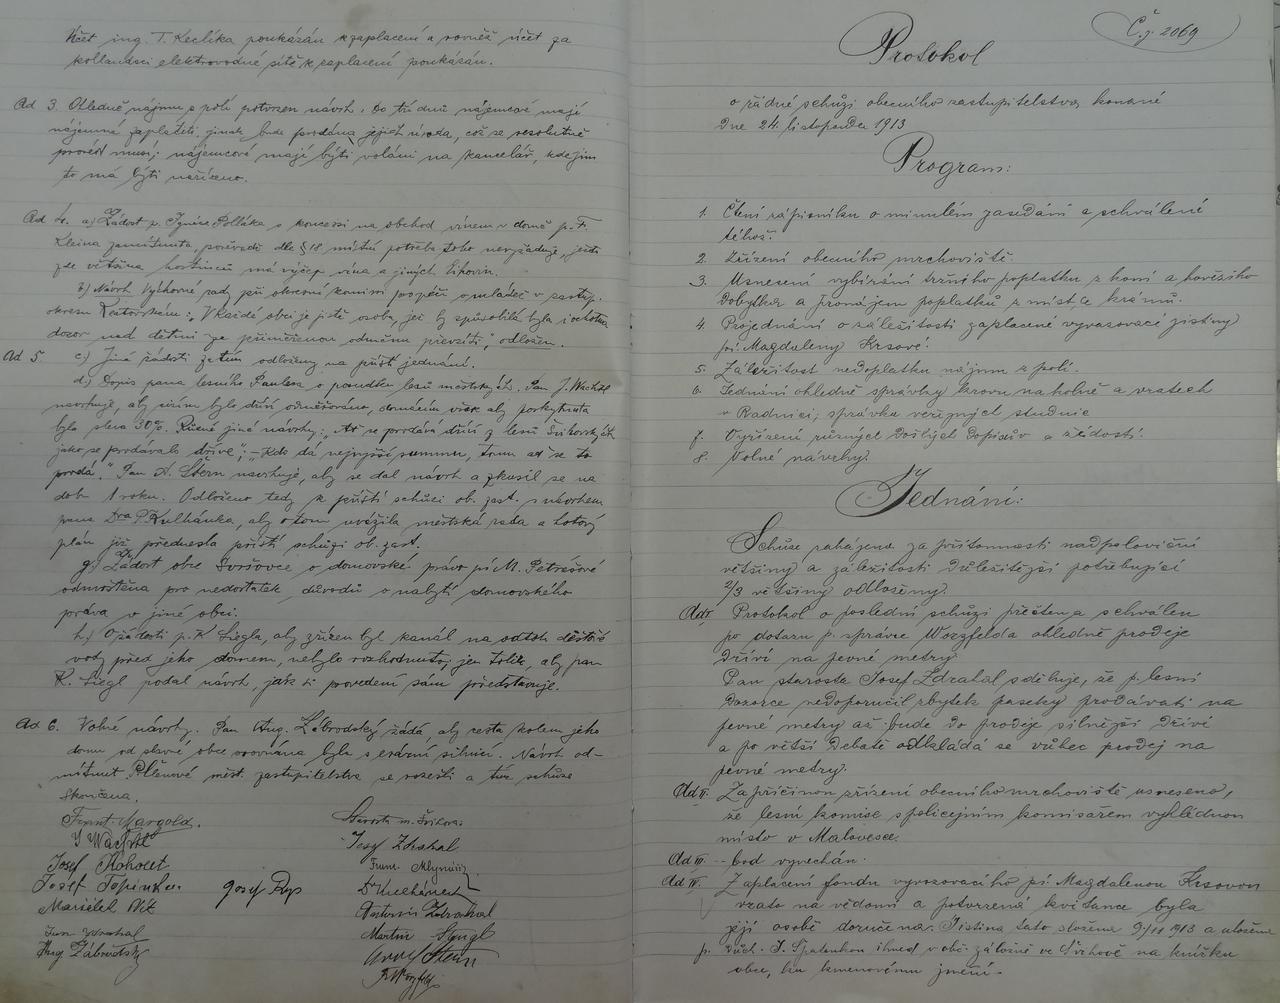 Účet ing. T. Keclíka poukázán k zaplacení a rovněž účet za
kollaudaci elektrovodné sítě k zaplacení poukázán.
Ad 3. Ohledně nájmu z polí potvrzen návrh. Do tří dnů nájemcové mají
nájemné zaplatiti, jinak bude prodána jejich úroda, což se resolutně
provést musí; nájemcové mají býti voláni na kancelář, kde jim
to má býti nařízeno.
Ad 4. a) Žádost p. Ignáce Polláka o koncessi na obchod vínem v domě p. F.
Kleina zamítnuta, poněvadž dle § 18 místní potřeba toho nevyžaduje, jeli
zde většina hostinců má výčep vína a jiných lihovin.
b) Návrh výkonné rady při okresní komisi pro péči o mládež v zastup.
okresu : „V každé obci je jistě osoba, jež by způsobilá byla i ochotna
dozor nad dětmi za přiměřenou odměnu převzíti“, odložen.
Ad 5. c) Jiné žádosti zatím odloženy na příští jednání.
d) Dopis pana lesního Paulusa o pořádku lesů městských. Pan J. Wachtl
navrhuje, aby bylo dříví odměřováno, domácím však aby poskytnuta
byla sleva 30%. Různé jiné návrhy: „Ať se prodává dříví z lesů Švihovských
jako se prodávalo dříve“; „Kdo dá nejvyšší summu, tomu ať se to
prodá.“ Pan A. Stern navrhuje, aby se dal návrh a zkusil se na
dob. 1 roku. Odloženo tedy k příští schůzi ob. zast. s návrhem
pana Dra P. Kulhánka, aby o tom uvážila městská rada a hotový
plán již přednesla příští schůzi ob. zast.
g) Žádost obce Svršovce o domovské právo pí M. Petrášové
odmrštěna pro nedostatek důvodů o nabytí domovského
práva v jiné obci.
h) O žádosti p. K. Liegla, aby zřízen byl kanál na odtok dešťové
vody před jeho domem, nebylo rozhodnuto, jen tolik, aby pan
K. Liegl podal návrh, jak si provedení sám představuje.
Ad 6. Volné návrhy. Pan Aug. Zábrodský žádá, aby cesta kolem jeho
domu od slavné obce srovnána byla s erární silnicí. Návrh od-
mítnut. Členové měst. zastupitelstva se rozešli a tím schůze
skončena.
Frant. Margold.
J Wachtl
Josef Kohout
Josef Topinka.
Maršálek Vít
Jan Zdrahal
Aug Zábrodský
Josef Pop
Starosta m. Švihova:
Josef Zdrahal
Franc. Mlynařík
Dr Kulhánek
Antonín Zdrahal
Martin Stengl
Adolf Stern
R Worzfeld
Č.j. 2069
Protokol
o řádné schůzi obecního zastupitelstva konané
Dne 24. listopadu 1913
Program:
1. Čtení zápisníku o minulém zasedání a schválení
téhož.
2. Zřízení obecního mrchoviště.
3. Usnesení vybírání tržného poplatku z koní a hovězího
dobytka a pronájem poplatků z míst, ce krámů.
4. Projednání o záležitosti zaplacené vyvazovací jistiny
pí. Magdaleny Krsové.
5. Záležitost nedoplatku nájmu z polí.
6. Jednání ohledně správky krovu na kolně a vratech
v Radnici; správka veřejných studnic
7. Vyřízení různých došlých dopisův a žádostí.
8. Volné návrhy.
Jednání:
Schůze zahájena za přítomnosti nadpoloviční
většiny a záležitosti důležitější potřebující
2/3 většiny odloženy.
Ad I. Protokol o poslední schůzi přečten a schválen
po dotazu p. správce Worzfelda ohledně prodeje
dříví na pevné metry.
Pan starosta Josef Zdrahal sděluje, že p. lesní
dozorce nedoporučil zbytek paseky prodávati na
pevné metry až bude do prodeje silnější dříví
a po větší debatě odkládá se vůbec prodej na
pevné metry.
Ad II. Zapříčinou zřízení obecního mrchoviště usneseno,
že lesní komise s policejním komisařem vyhlédnou
místo v Malovesce.
Ad III. -- bod vynechán.
Ad IV. Zaplacení fondu vyvazovacího pí. Magdalenou Krsovou
vzato na vědomí a potvrzená kvitance byla
její osobě doručena. Jistina tato složena 9./11 1913 a uložena
p. důch. J. Špatenkou ihned v obč. záložně ve Švihově na knížku
obce, ku kmenovému jmění.-